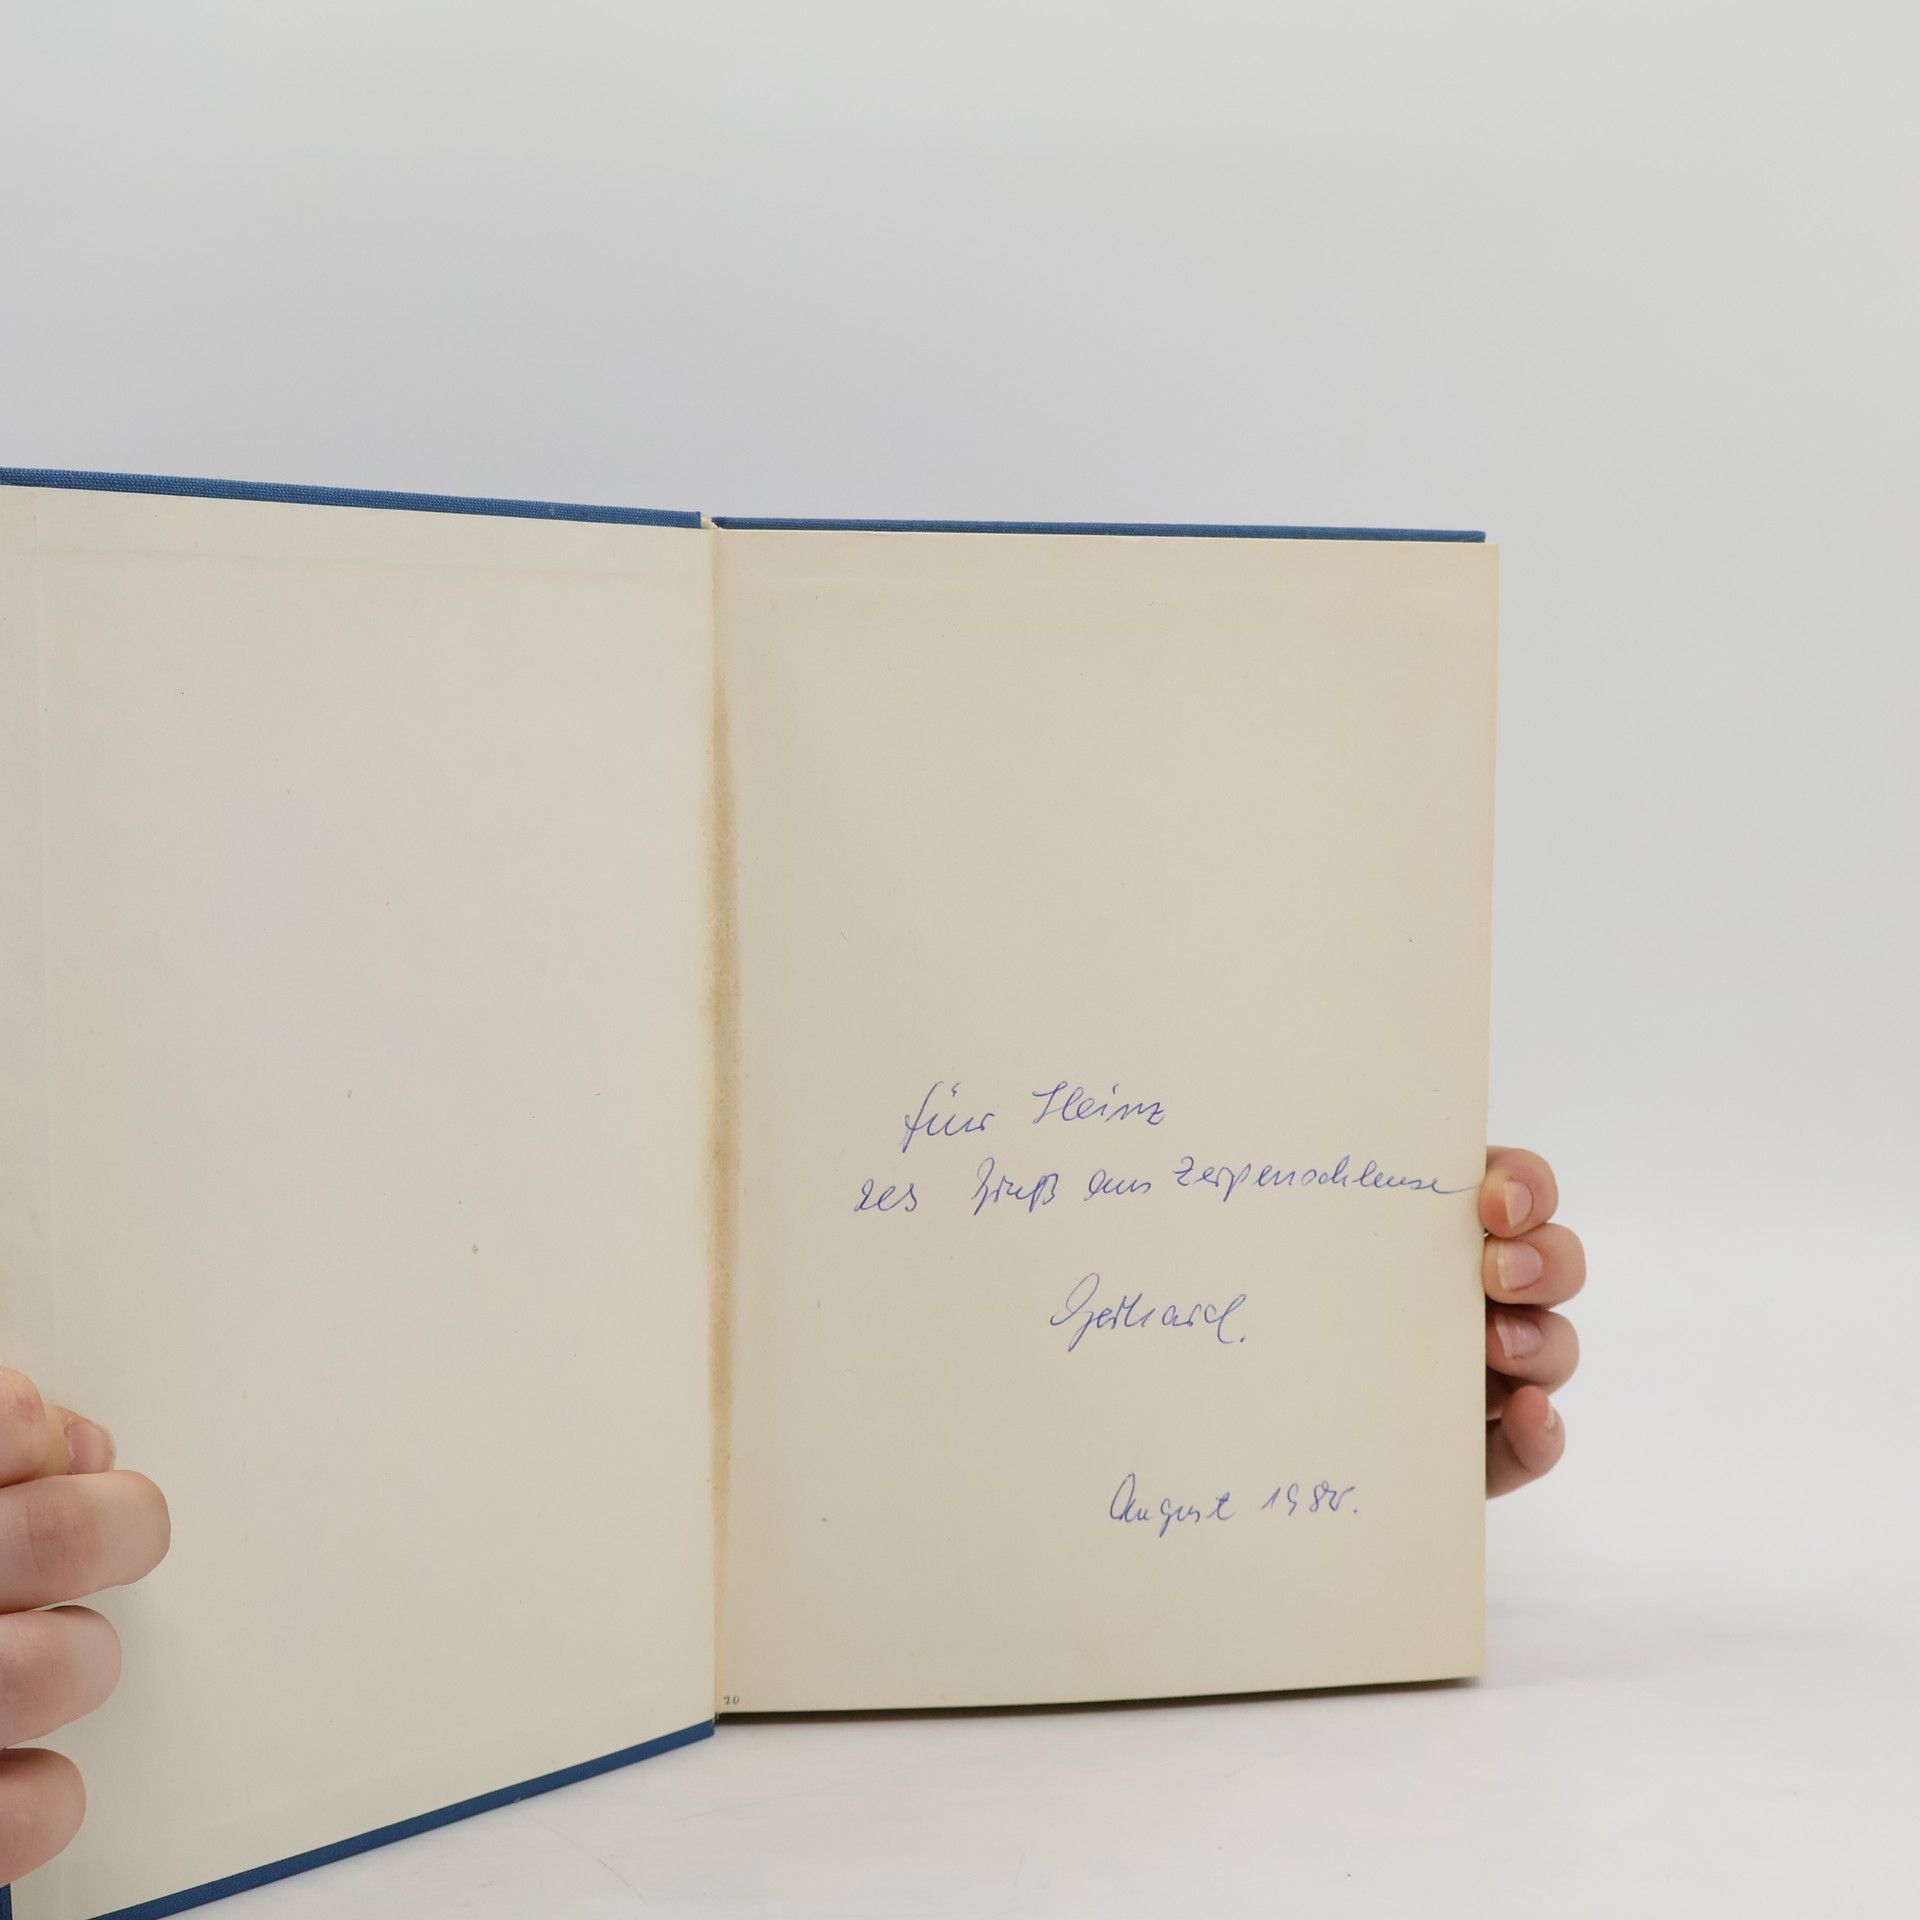 für Heinz
Gruß aus Zerpenschleuse
Gerhard.
August
20